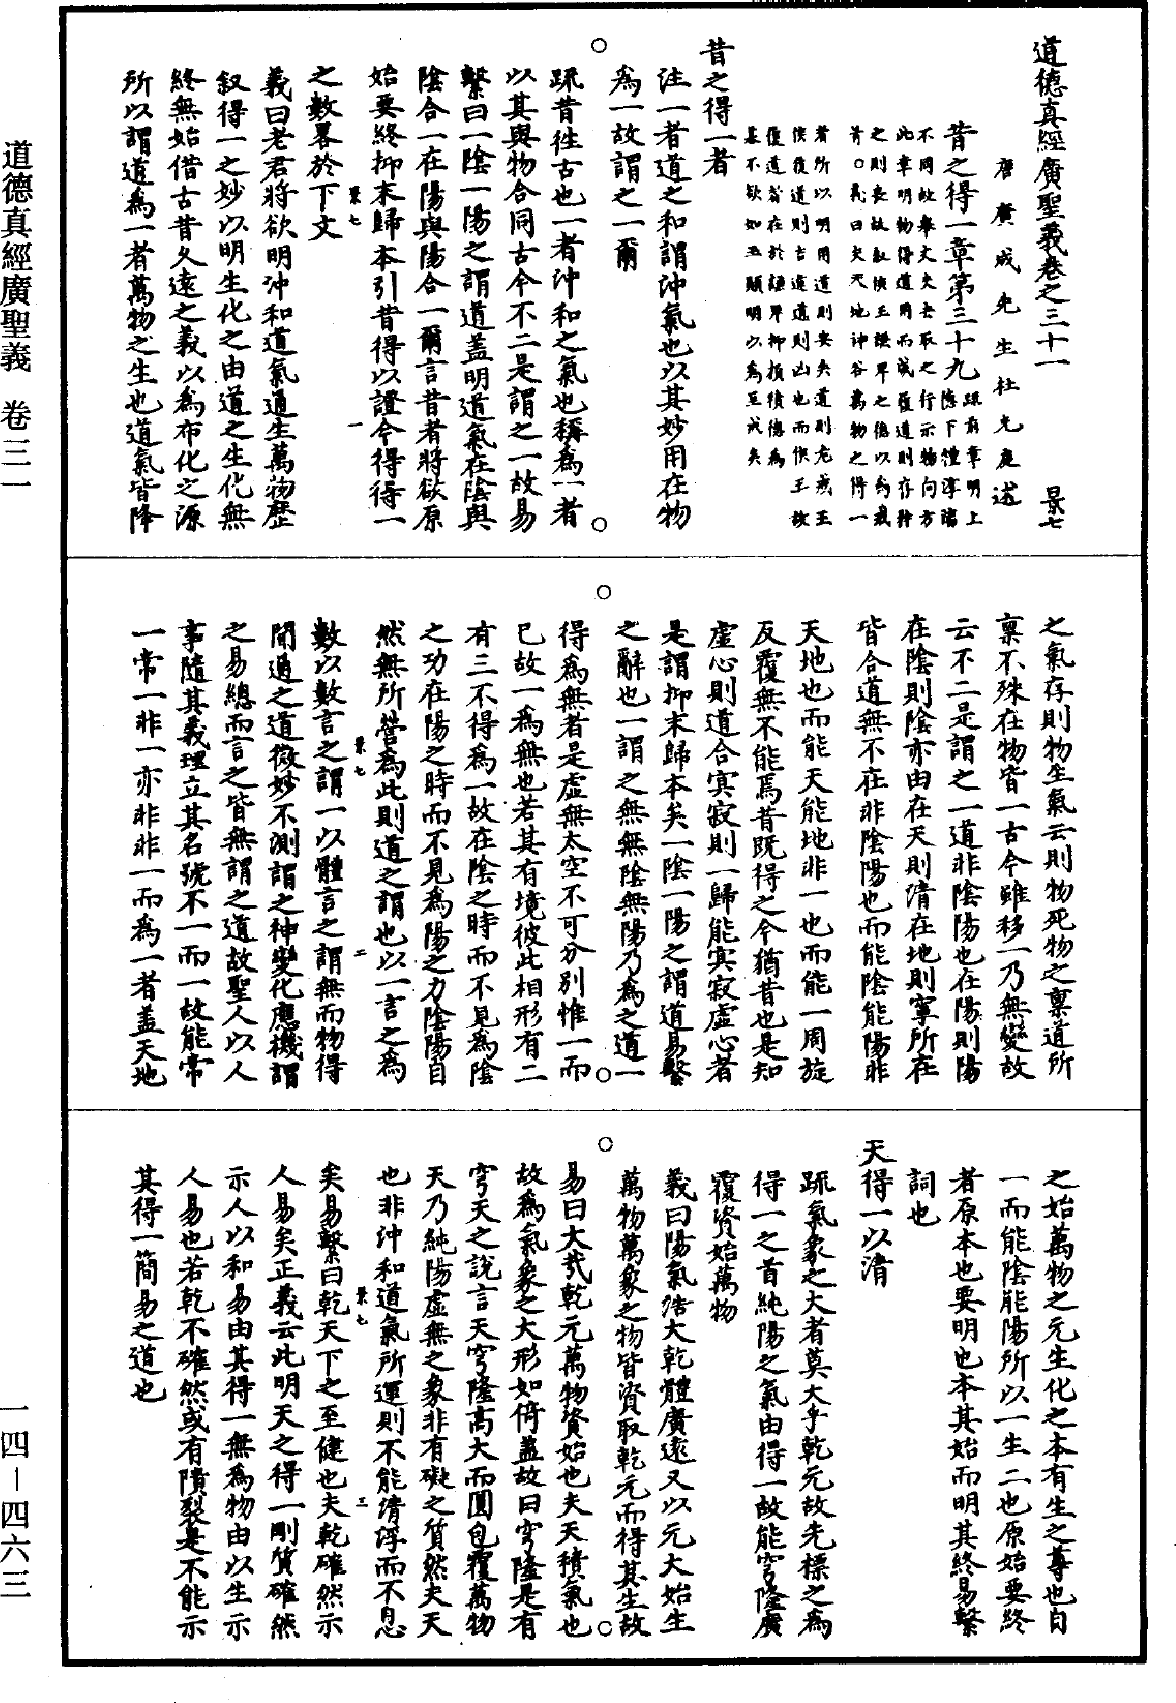 道德真經廣聖義卷之三十一　景七
唐廣成先生杜光庭述
昔之得一章第三十九
疏前章明上德下德淳漓
不同故舉丈夫去取之行示物向方
此章明物得道用而成覆道則存特
之則喪故叙侯王謙卑之德以為戒
耳○義曰夫天地神谷萬物之得一
者所以明用道則安失道則危戒王
侯復道則吉違道則凶也而侯王故
復道者在於謙卑抑損積德為
基不欲如玉顯明以為至戒矣
昔之得一者
注一者道之和謂沖氣也以其妙用在物
為一故謂之一爾
疏昔往古也一者沖和之氣也稱為一者
以其與物合同古今不二是謂之一故易
繫曰一陰一陽之謂道蓋明道氣在陰與
陰合一在陽與陽合一爾言昔者將欲原
始要終抑末歸本引昔得以證今得得一
景七　一
之數畧於下文
義曰老君將欲明沖和道氣通生萬物歷
叙得一之妙以明生化之由道之生化無
終無始借古昔久遠之義以為布化之源
所以謂道為一者萬物之生也道氣皆降
之氣存則物生氣云則物死物之稟道所
稟不殊在物皆一古今雖移一乃無變故
云不二是謂之一道非陰陽也在陽則陽
在陰則陰亦由在天則清在地則寧所在
皆合道無不在非陰陽也而能陰能陽非
天地也而能天能地非一也而能一周旋
反覆無不能焉昔既得之今猶昔也是知
虛心則道合寞寂則一歸能寞寂虛心者
是謂抑末歸本矣一陰一陽之謂道易繫
之辭也一謂之無無陰無陽乃為之道一
得為無者是虛無太空不可分別惟一而
已故一為無也若其有境彼此相形有二
有三不得為一故在陰之時而不見為陰
之功在陽之時而不見為陽之力陰陽自
然無所營為此則道之謂也以一言之為
景七　二
數以數言之謂一以體言之謂無而物得
開通之道微妙不測謂之神變化應機謂
之易總而言之皆無謂之道故聖人以人
事隨其義理立其名號不一而一故能常
一常一非一亦非非一而為一者蓋天地
之始萬物之元生化之本有生之尊也自
一而能陰能陽所以一生二也原始要終
者原本也要明也本其始而明其終易繫
詞也
天得一以清
疏氣象之大者莫大乎乾元故先標之為
得一之首純陽之氣由得一故能穹隆廣
覆資始萬物
義曰陽氣浩大乾體廣遠又以元大始生
萬物萬象之物皆資取乾元而得其生故
易曰大哉乾元萬物資始也夫天積氣也
故為氣象之大形如倚蓋故曰穹隆是有
穹天之說言天穹隆高大而圓包覆萬物
天乃純陽虛無之象非有礙之質然夫天
也非沖和道氣所運則不能清浮而不息
景七　三
矣易繫曰乾天下之至健也夫乾確然示
人易矣正義云此明天之得一剛質確然
示人以和易由其得一無為物由以生示
人易也若乾不確然或有隤裂是不能示
其得一簡易之道也
道德真經廣聖義　卷三一
一四—四六三